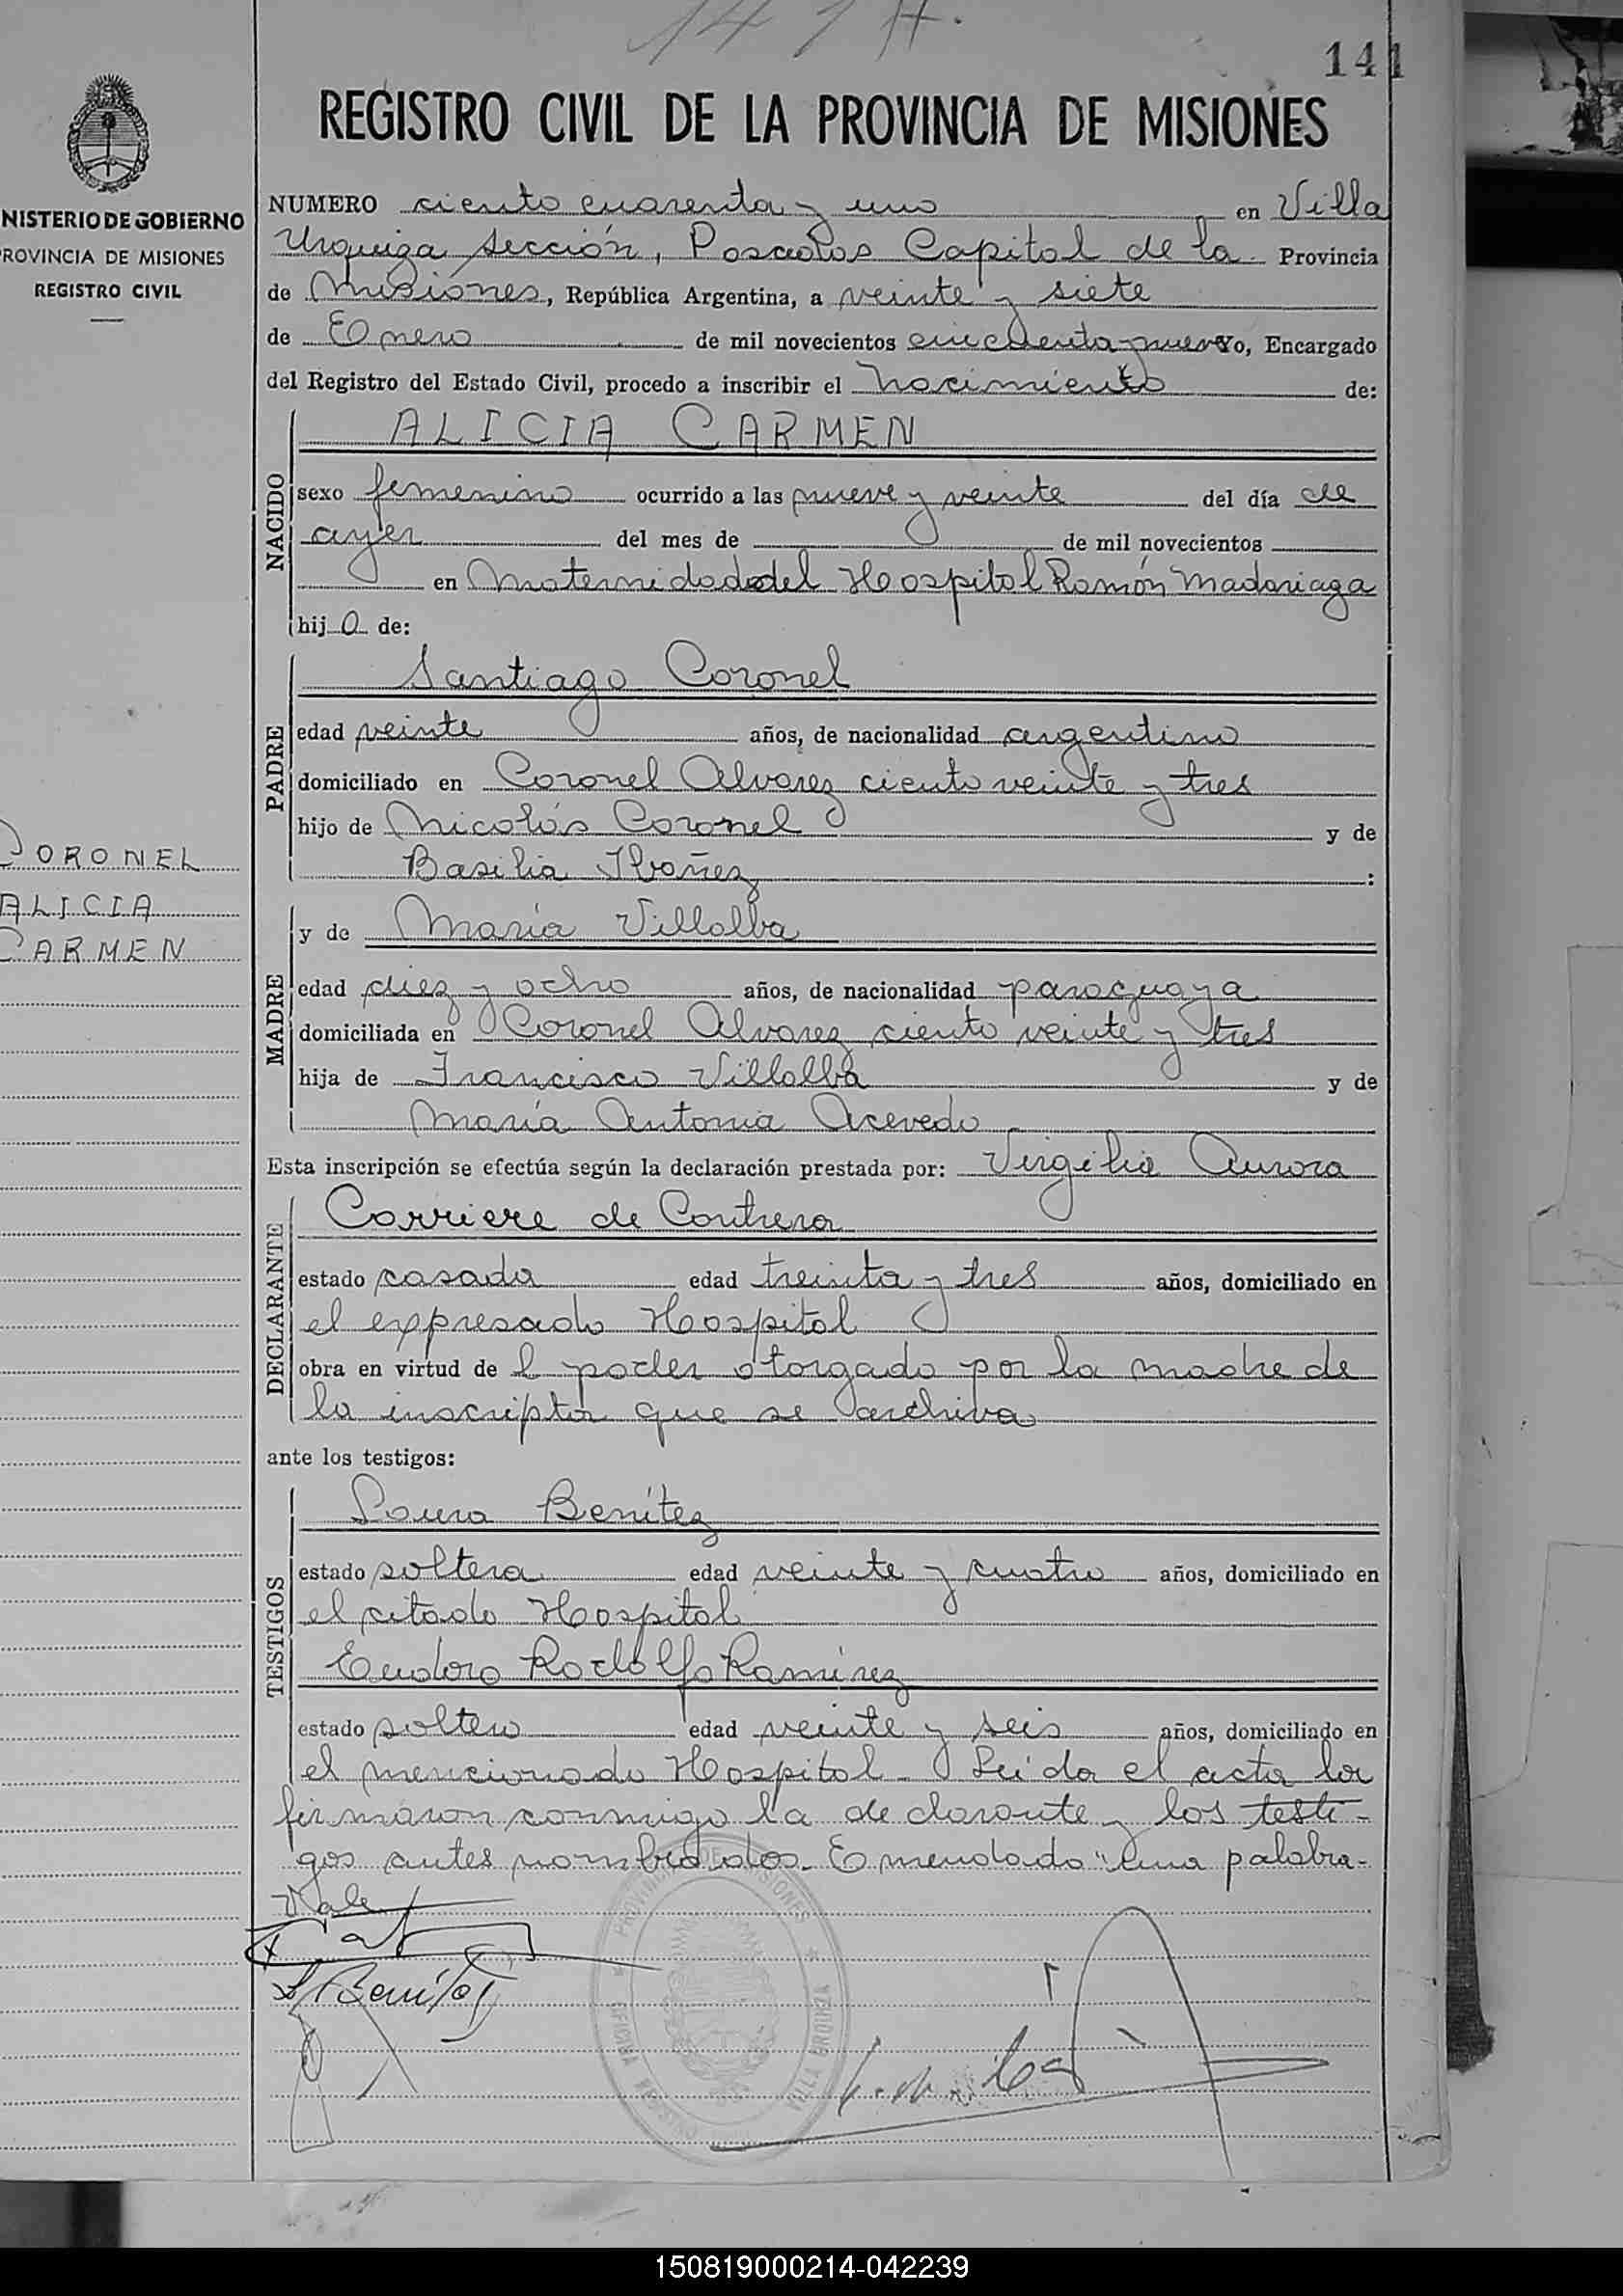 141 A.
141
REGISTRO CIVIL DE LA PROVINCIA DE MISIONES
NISTERIO DE GOBIERNO
ROVINCIA DE MISIONES
REGISTRO CIVIL
CORONEL
ALICIA
CARMEN
NUMERO ciento cuarenta y uno en Villa
Urquiza sección, Posadas Capital de la Provincia
de Misiones, República Argentina, a veinte y siete
de Enero de mil novecientos cincuenta y nueve Yo, Encargado
del Registro del Estado Civil, procedo a inscribir el nacimiento de:
NACIDO
ALICIA CARMEN
sexo femenino ocurrido a las nueve y veinte del día de
ayer del mes de de mil novecientos
en Maternidad del Hospital Ramón Madariaga
hij a de:
PADRE
Santiago Coronel
edad veinte años, de nacionalidad argentino
domiciliado en Coronel Alvarez ciento veinte y tres
hijo de Nicolás Coronel y de
Basilia Ibañez :
MADRE
y de María Villalba
edad diez y ocho años, de nacionalidad paraguaya
domiciliada en Coronel Alvarez ciento veinte y tres
hija de Francisco Villalba y de
María Antonia Acevedo
Esta inscripción se efectúa según la declaración prestada por: Virgilia Aurora
DECLARANTE
Corriere de Contrera
estado casada edad treinta y tres años, domiciliado en
el expresado Hospital
obra en virtud de l poder otorgado por la madre de
la inscripta que se archiva
ante los testigos:
TESTIGOS
Laura Benítez
estado soltera edad veinte y cuatro años, domiciliado en
el citado Hospital
Eudoro Rodolfo Ramírez
estado soltero edad veinte y seis años, domiciliado en
el mencionado Hospital. Leída el acta la
firmaron conmigo la declarante y los testi-
gos antes nombrados. Emendado "una palabra-
Vale
L Benítez
PROVINCIA DE MISIONES
OFICINA REGISTRO
VILLA URQUIZA
150819000214-042239